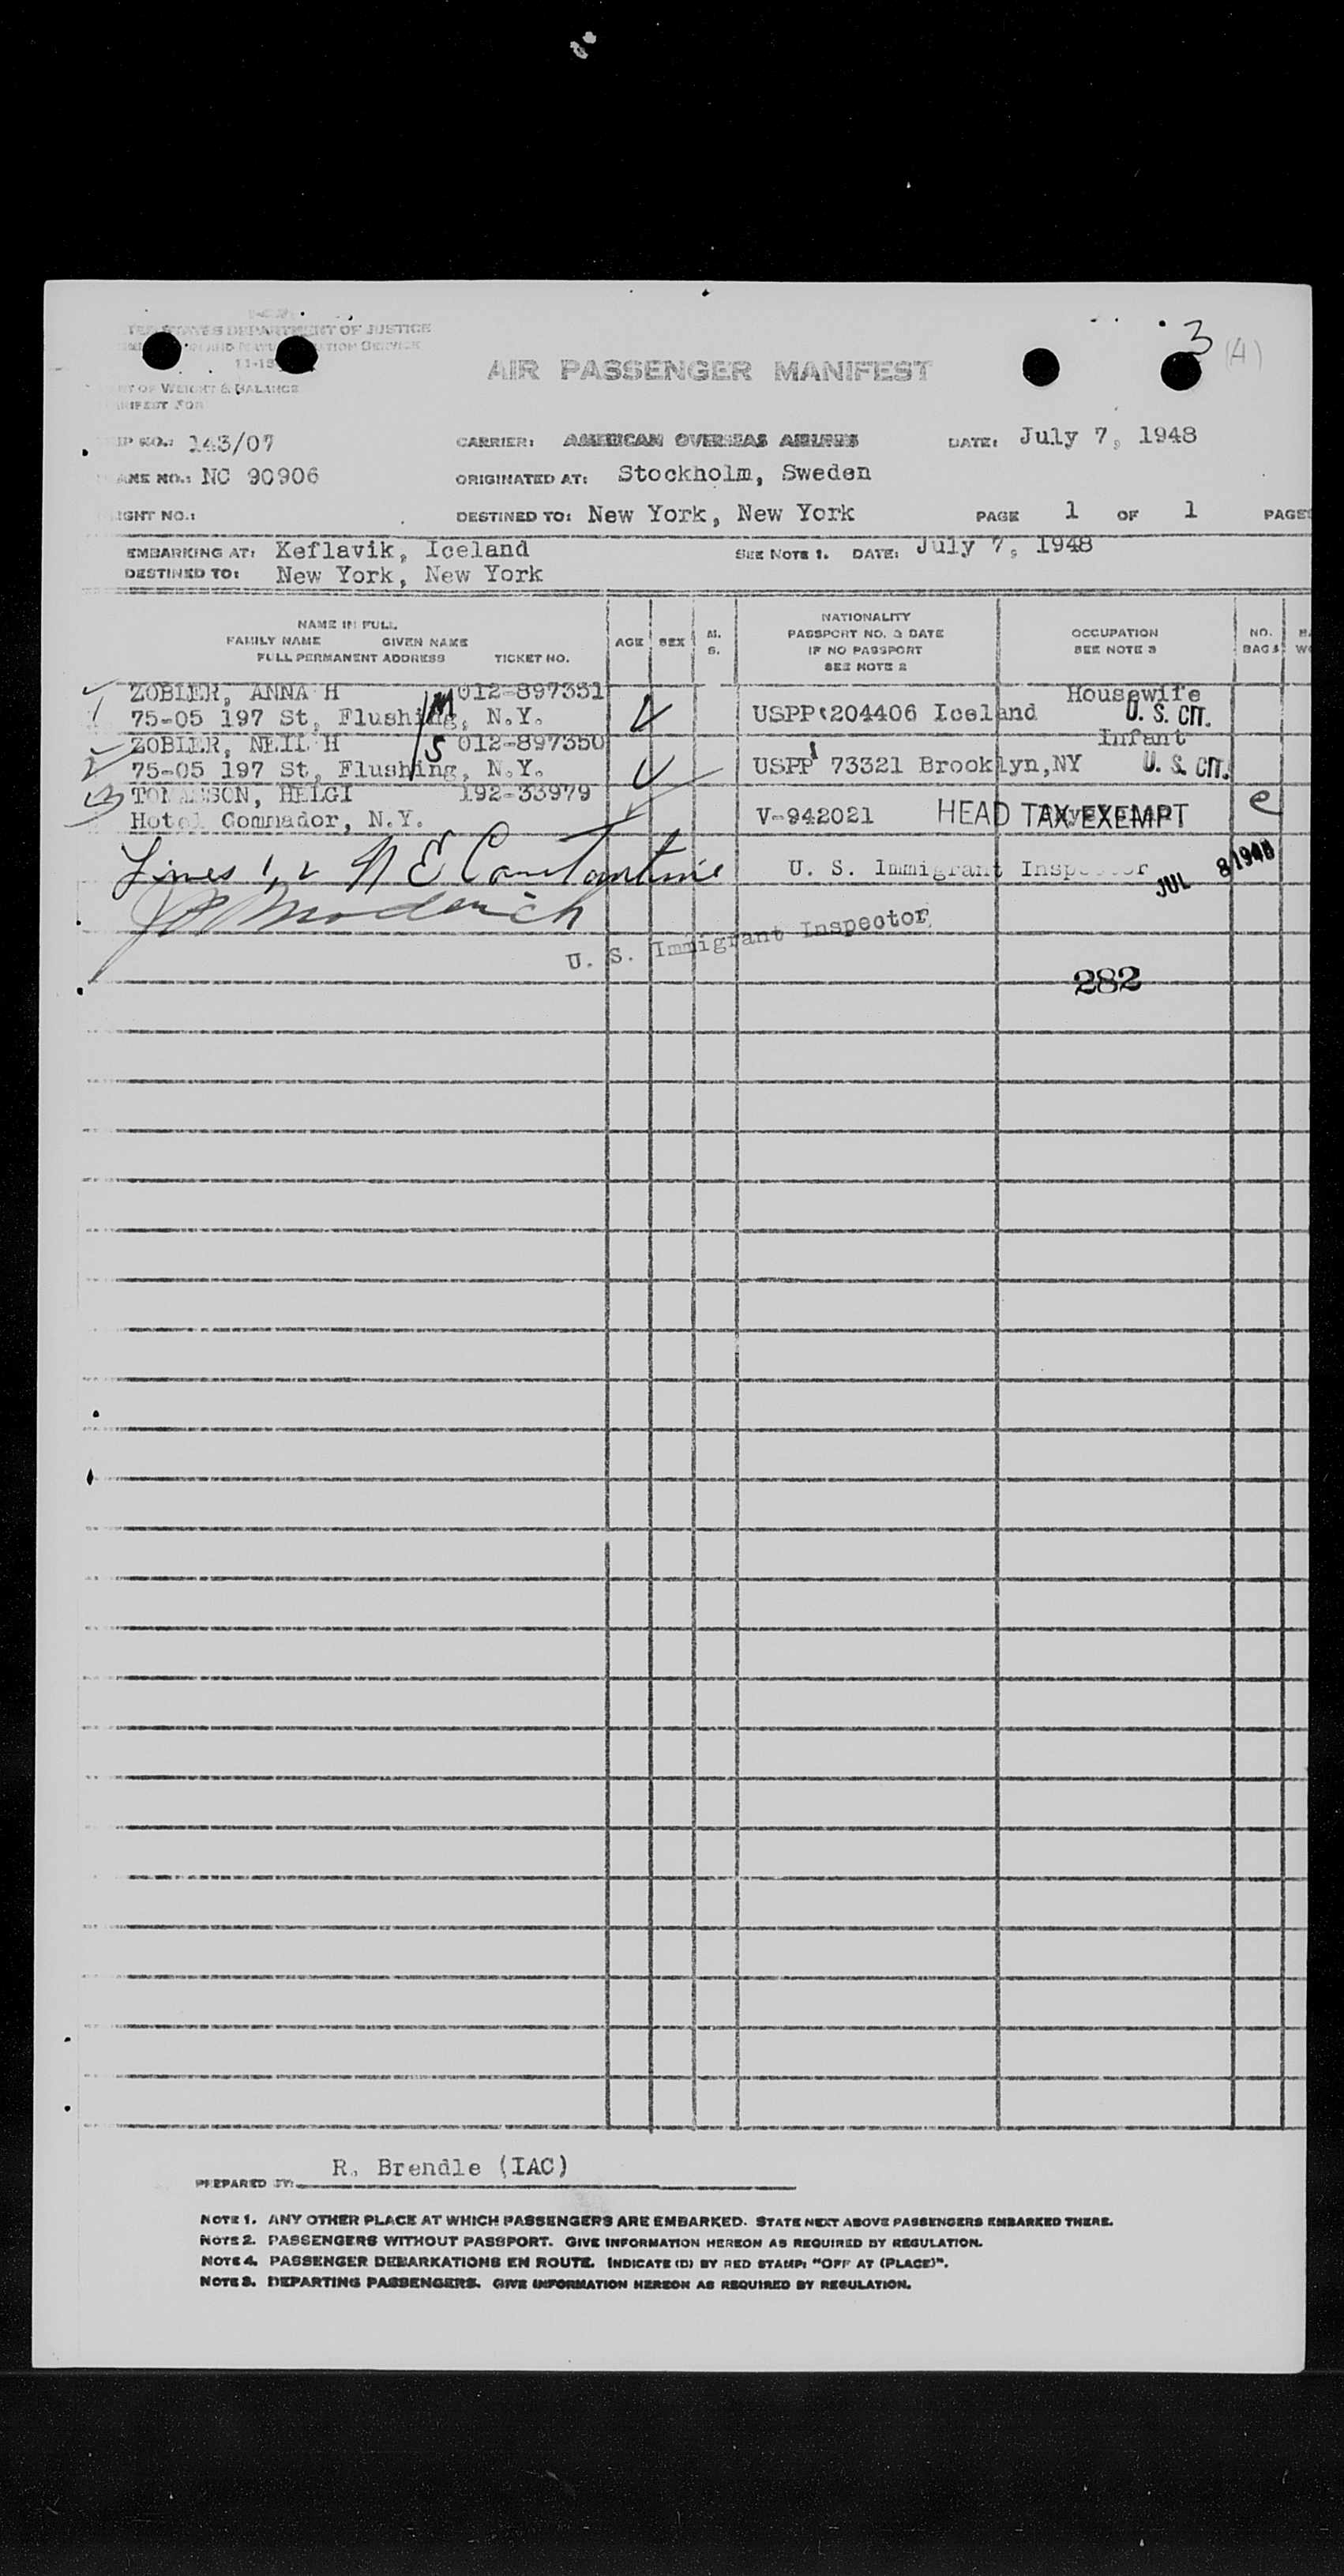 3 (4)
STATES DEPARTMENT OF JUSTICE
AIR PASSENGER MANIFEST
OF WEIGHT & BALANCE
NO.: 143/07 CARRIER: AMERICAN OVERSEAS AIRLINES DATE: July 7, 1948
NO.: NC 90906 ORIGINATED AT: Stockholm, Sweden
NO.: DESTINED TO: New York, New York PAGE 1 OF 1
EMBARKING AT: Keflavik, Iceland SEE NOTE 1. DATE: July 7, 1948
DESTINED TO: New York, New York
NAME IN FULL
FAMILY NAME GIVEN NAME
FULL PERMANENT ADDRESS TICKET NO.
AGE
SEX
M.
S.
NATIONALITY
PASSPORT NO. & DATE
IF NO PASSPORT
SEE NOTE 2
OCCUPATION
SEE NOTE 3
NO.
BAGS
1 ZOBLER, ANNA H 012-897351 Housewife
75-05 197 St, Flushing, N.Y. M USPP 204406 Iceland U. S. CIT.
2 ZOBLER, NEIL H S 012-897350 Infant
75-05 197 St, Flushing, N.Y. USPP 73321 Brooklyn,NY U. S. CIT.
3 TOMASSON, HELGI 192-33979
Hotel Commador, N.Y. V-942021 HEAD TAX EXEMPT
Lines 1, 2 N E Constantine U. S. Immigrant Inspector JUL 8 1948
U. S. Immigrant Inspector
282
PREPARED BY: R. Brendle (IAC)
NOTE 1. ANY OTHER PLACE AT WHICH PASSENGERS ARE EMBARKED. STATE NEXT ABOVE PASSENGERS EMBARKED THERE.
NOTE 2. PASSENGERS WITHOUT PASSPORT. GIVE INFORMATION HEREON AS REQUIRED BY REGULATION.
NOTE 4. PASSENGER DEBARKATIONS EN ROUTE. INDICATE (D) BY RED STAMP: "OFF AT (PLACE)".
NOTE 3. DEPARTING PASSENGERS. GIVE INFORMATION HEREON AS REQUIRED BY REGULATION.